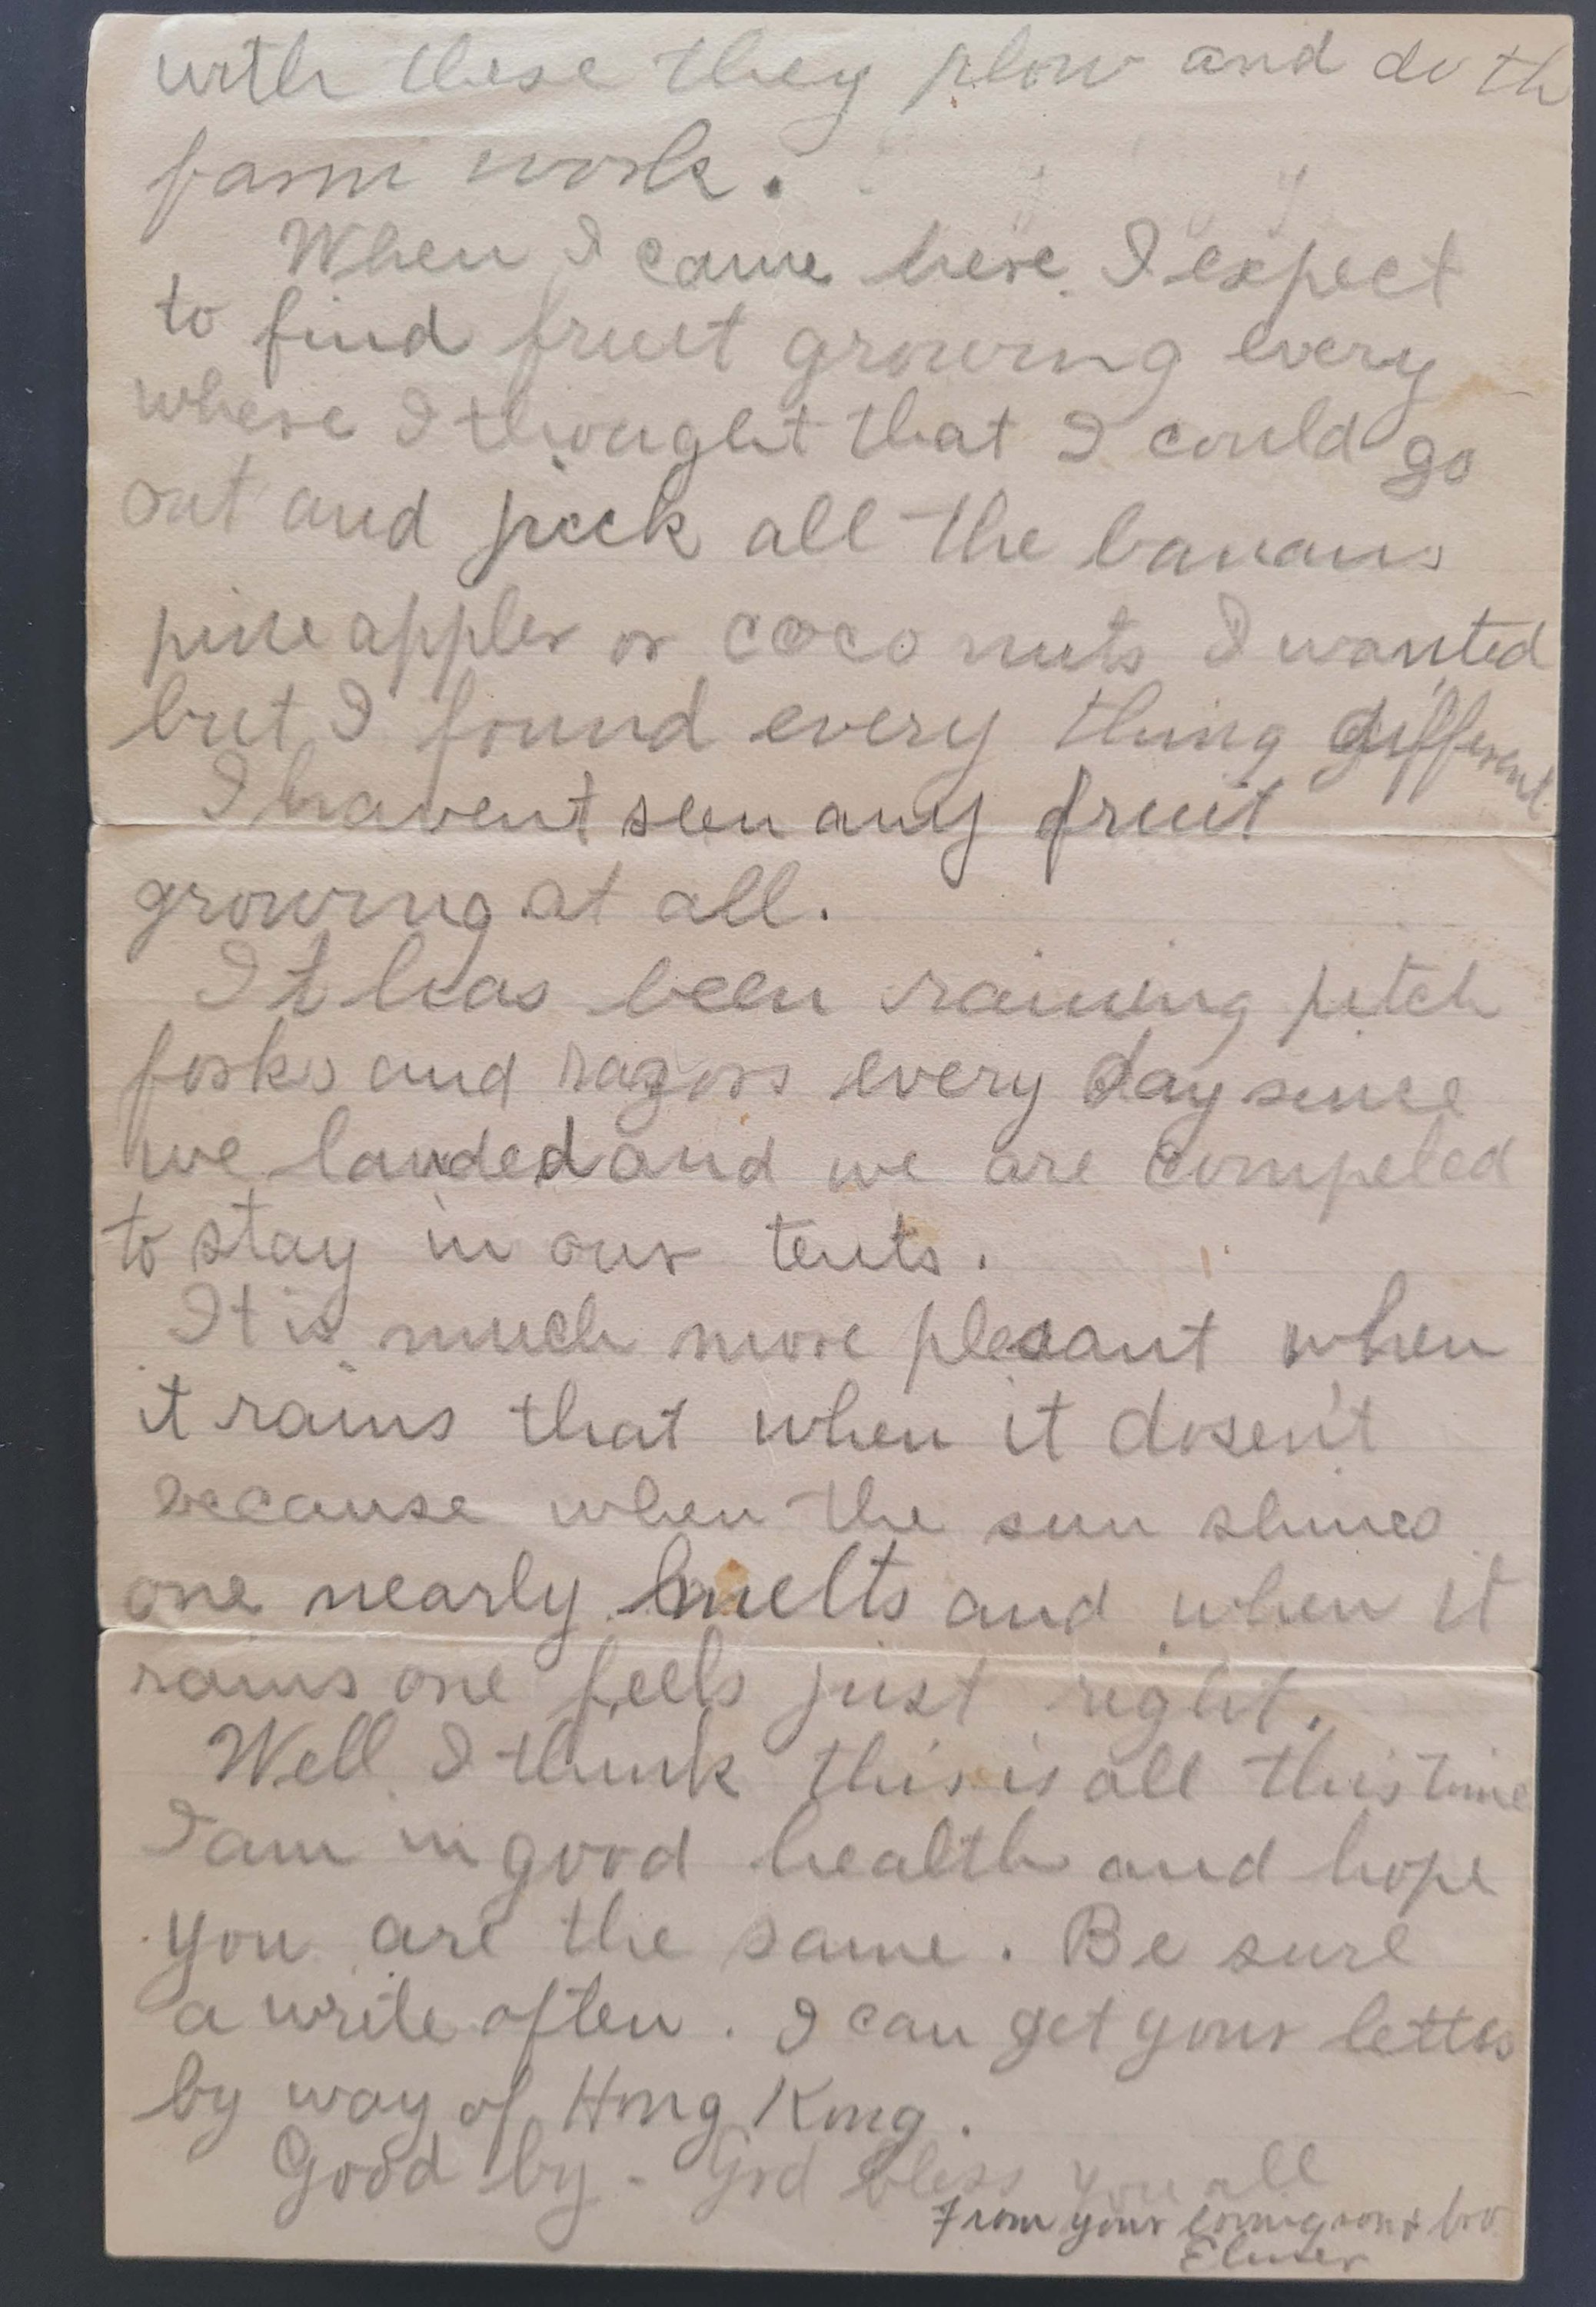 with these they plow and do th
farm work.
When I came here I expect
to find fruit growing every
where I thought that I could go
out and pick all the banans
pine apples or coco nuts I wanted
but I found every thing different
I havent seen any fruit
growing at all.
It has been raining pitch
forks and razors every day since
we landed and we are compeled
to stay in our tents.
It is much more pleasant when
it rains that when it dosen't
because when the sun shines
one nearly melts and when it
rains one feels just right.
Well I think this is all this time
I am in good health and hope
you are the same. Be sure
a write often. I can get your letters
by way of Hong Kong.
Good by - God bless you all
From your loving son & bro
Elmer